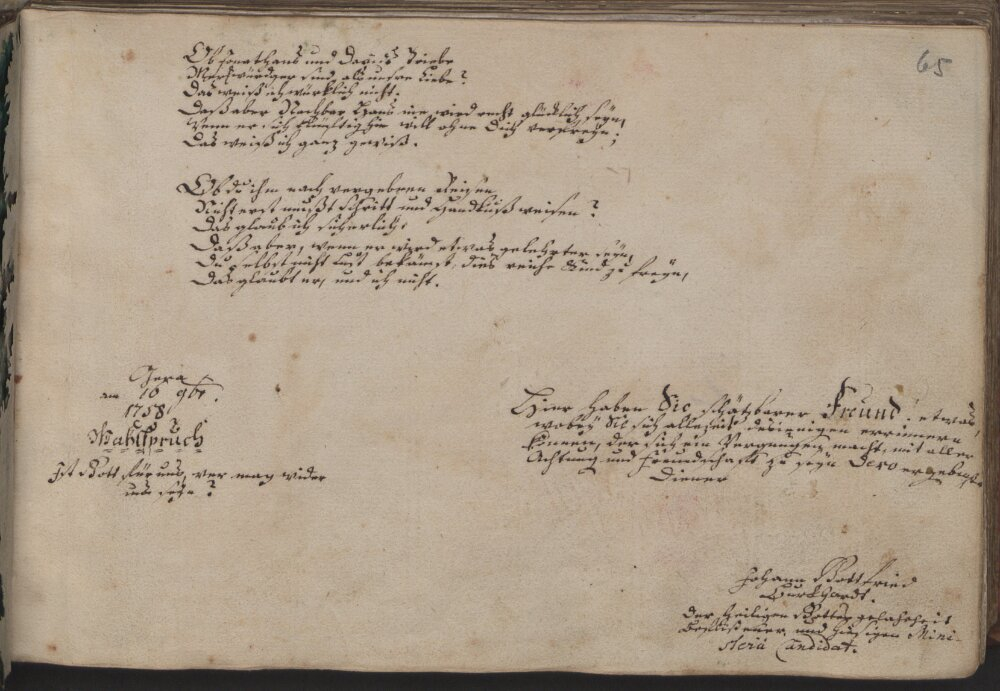 65
Ob Jonathans und Davids Triebe
Merkwürdger sind als unsre Liebe?
Das weiß ich würklich nicht.
Daß aber Nachbar Hans nie wird recht glücklich seyn,
Wenn er sich künftighin will ohne Dich erfreyn,
Das weiß ich ganz gewiß.
Ob du ihm nach vergebnen Reisen
Nicht erst mußt Schritt und Handkuß weisen?
Das glaub ich sicherlich.
Daß aber, wenn er wird etwas gelehrter seyn,
Du selbst nicht Lust bekämst, dies reiche Kind zu freyn,
Das glaubt er, und ich nicht.
Gera
am 10 9br.
1758
Wahlspruch
Ist Gott für uns, wer mag wider
uns seyn?
Hier haben Sie schätzbarer Freund! etwas,
wobey Sie sich allezeit desjenigen errinnern
können, der sich ein Vergnügen macht, mit aller
Achtung und Freundschafft zu seyn Dero ergebenster
Diener
Johann Gottfried
Burkhardt.
Der Heiligen Gottesgelahrheit
Beflißener, und hiesigen Mini-
sterii Candidat.